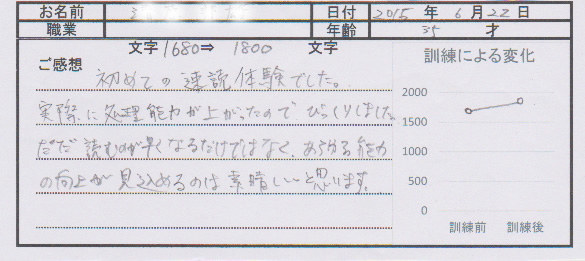 お名前 日付 2015 年 6 月 22 日
職業 年齢 35 才
文字 1680⇒ 1800 文字
ご感想
初めての速読体験でした。
実際に処理能力が上がったので びっくりしました
ただ 読むのが早くなるだけではなく、あらゆる能力
の向上が見込めるのは素晴しいと思います。
訓練による変化
2000
1500
1000
500
0
訓練前 訓練後